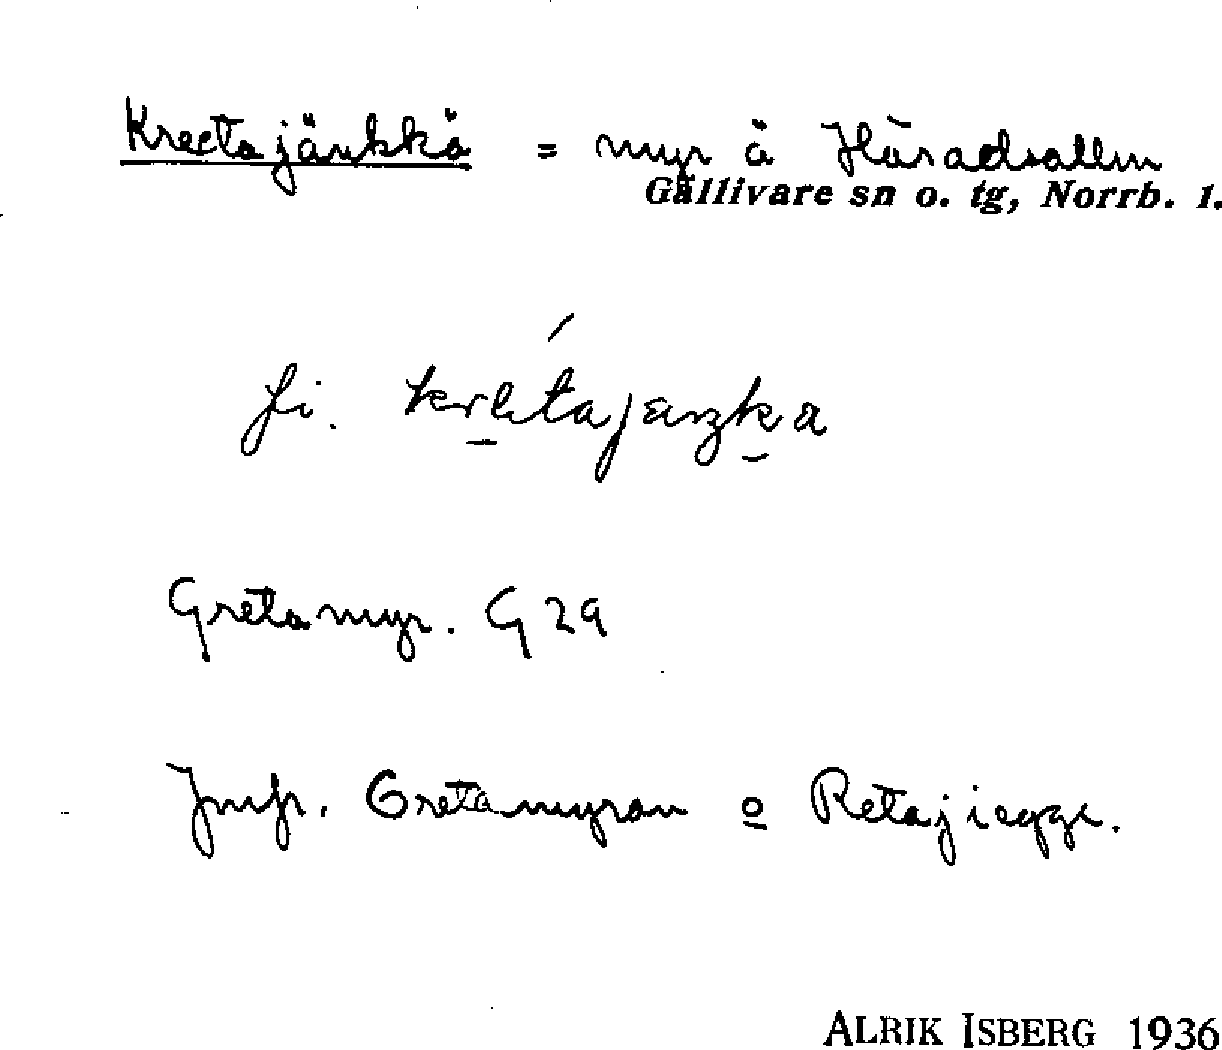 Kreetajänkkä = myr å Häradsallm
Gällivare sn o. tg, Norrb. 1.
fi.
Gretamyr. G 29
Jmfr. Gretamyran o Retajiegge.
ALRIK ISBERG 1936